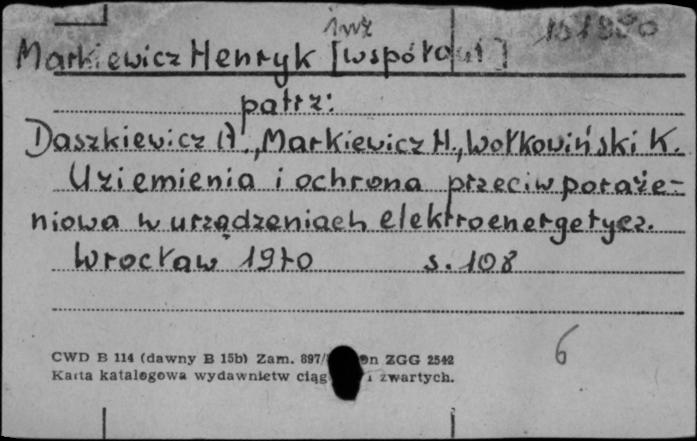 inż
Markiewicz Henryk [współaut]
patrz:
Daszkiewicz A., Markiewicz H., Wołkowiński K.
Uziemienia i ochrona przeciwporaże-
niowa w urządzeniach elektroenergetycz.
Wrocław 1970 s. 108
6
CWD B 114 (dawny B 15b) Zam. 897/ n ZGG 2542
Karta katalogowa wydawnictw ciąg i zwartych.